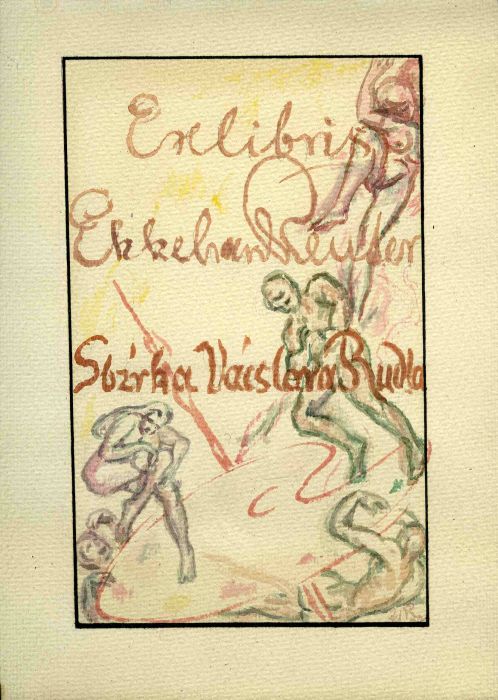 Exlibris
Ekkehard Reuter
Sbírka Vácslava Rudla